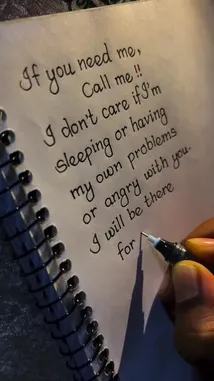 If you need me,
Call me !!
I don't care if I'm
sleeping or having
my own problems
or angry with you.
I will be there
for